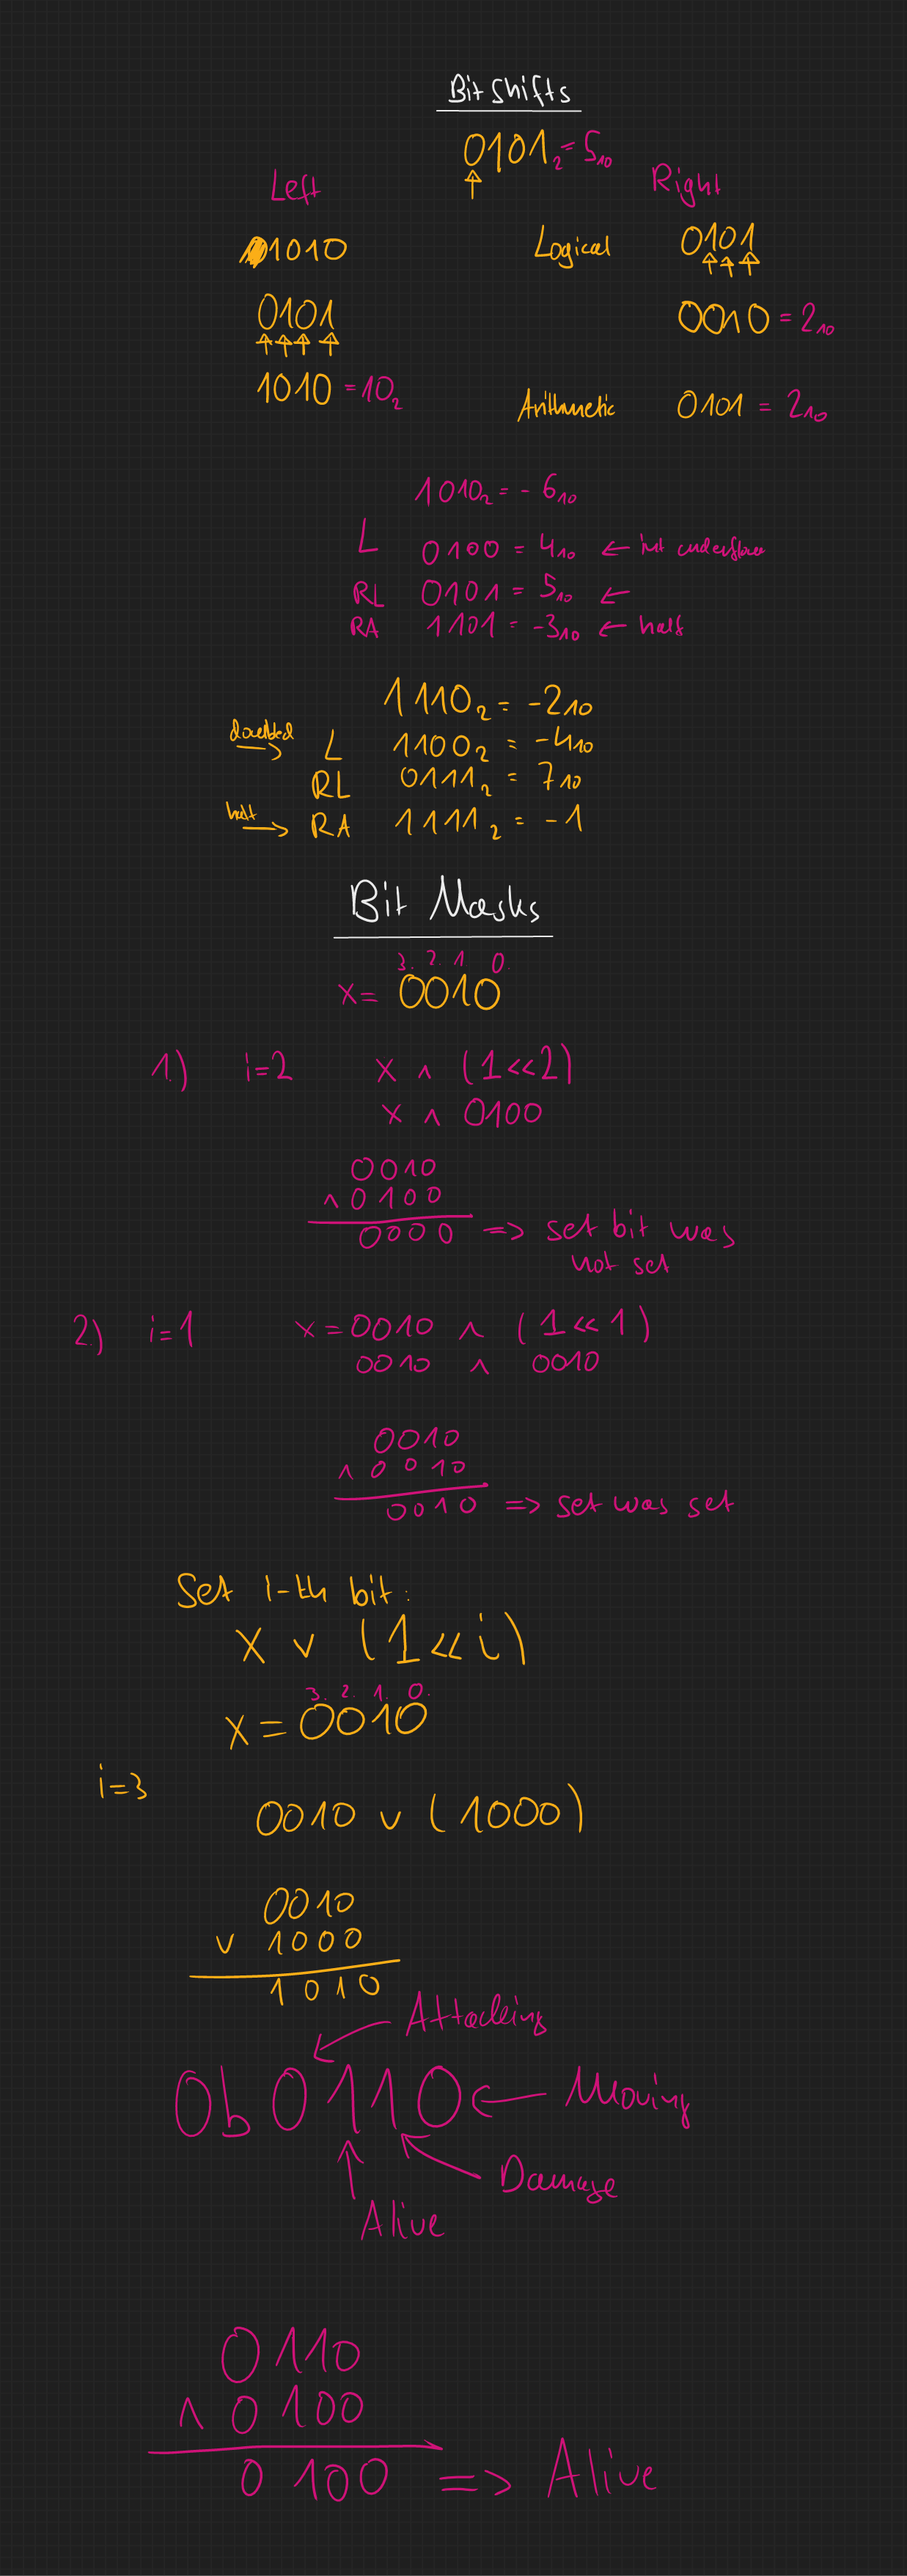 Bit Shifts
0101₂ = 5₁₀
Left
Right
1010
Logical 0101
0101
0010 = 2₁₀
1010 = 10₂
Arithmetic 0101 = 2₁₀
1010₂ = - 6₁₀
L 0100 = 4₁₀ ← int underflow
RL 0101 = 5₁₀ ←
RA 1101 = -3₁₀ ← half
1110₂ = -2₁₀
doubled → L 1100₂ = -4₁₀
RL 0111₂ = 7₁₀
half → RA 1111₂ = -1
Bit Masks
3. 2. 1 0.
x = 0010
1.) i=2 x ∧ (1<<2)
x ∧ 0100
0010
∧ 0100
0000 => set bit was
not set
2.) i=1 x = 0010 ∧ (1<<1)
0010 ∧ 0010
0010
∧ 0010
0010 => set was set
Set i-th bit:
x ∨ (1<<i)
3. 2. 1. 0.
x = 0010
i=3
0010 ∨ (1000)
0010
∨ 1000
1010
Attacking
0b0110 ← Moving
Damage
Alive
0110
∧ 0100
0100 => Alive